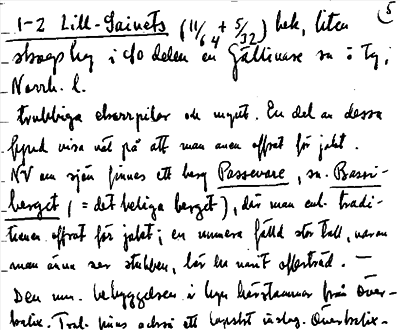 5
1-2 Lill-Saivets (11/6 4 + 5/32) bek, liten
i so delen en Gällivare sn o Ty,
Norrb. l.
trubbiga och mynt. En del av dessa
fynd visa väl på att man även offrat för jakt.
NV om sjön finnes ett berg Passevare, sv. Bassi-
berget (= det heliga berget), där man enl. tradi-
tionen offrat för jakt; en numera fälld stor tall, varav
man ännu ser stubben, lär ha varit offerträd. –
Den nuv. bebyggelsen i byn härstammar från Över-
kalix. Trol. finns också ett lapskt inslag. Överkalix-